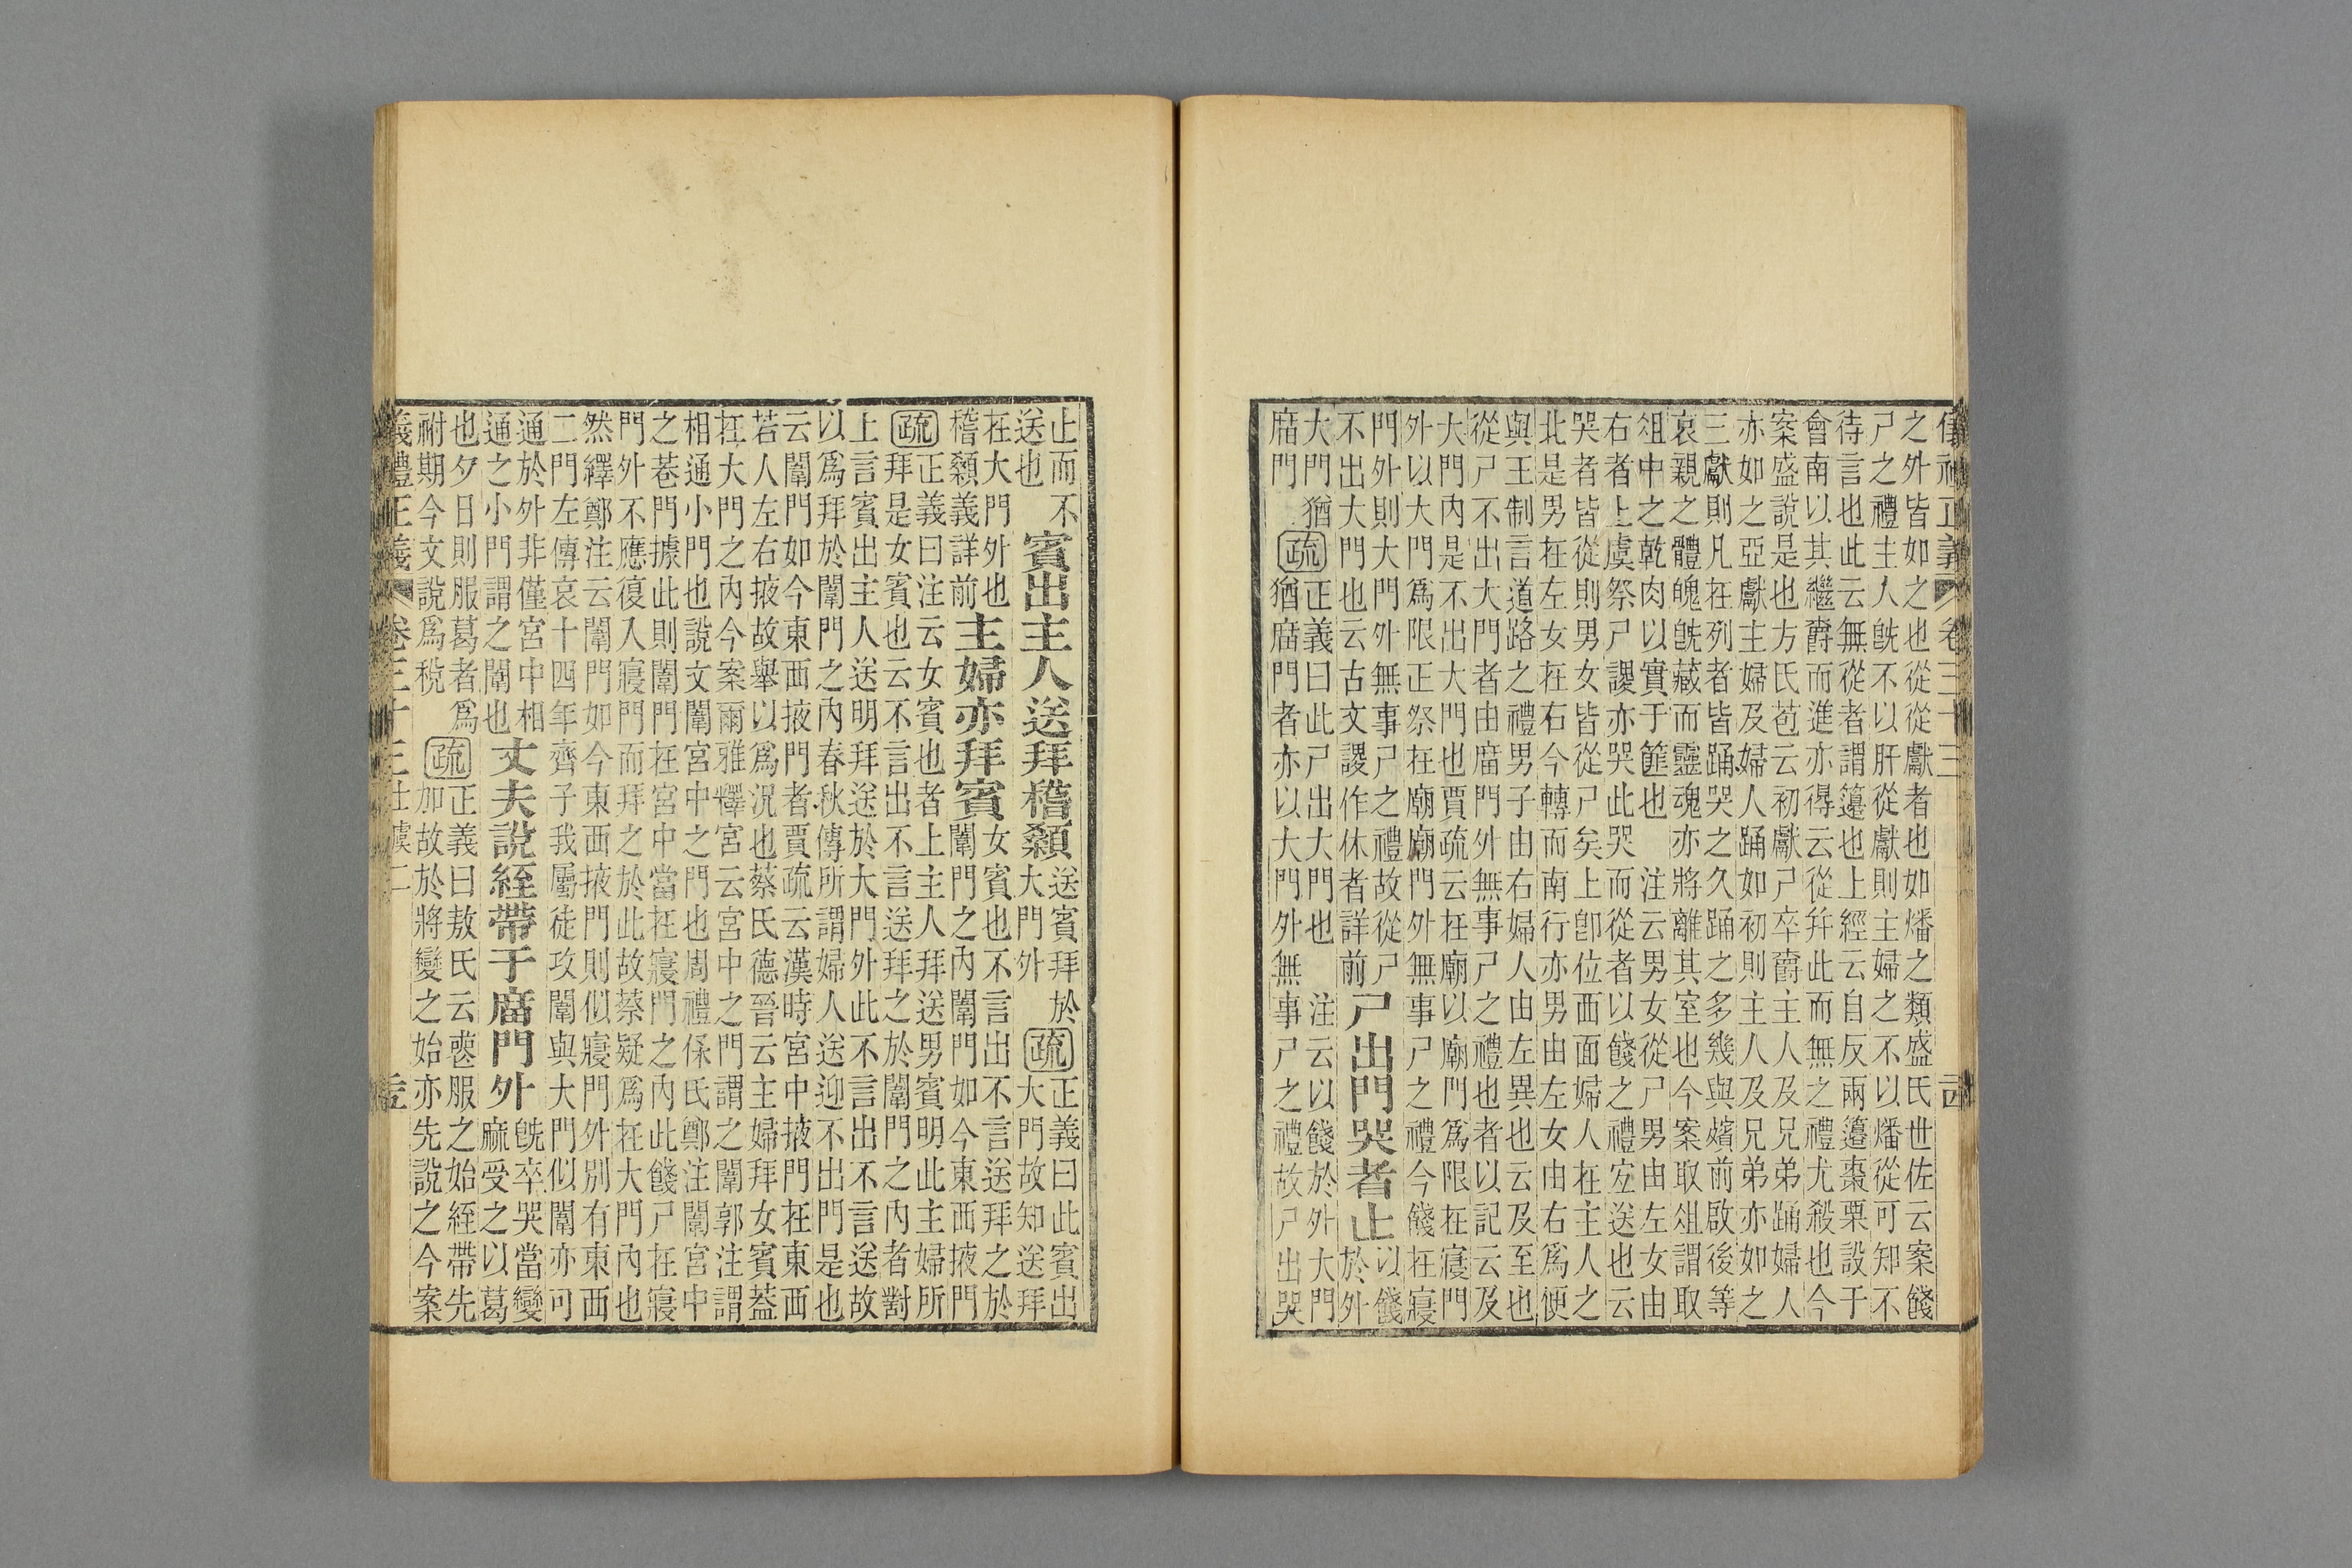 儀禮正義 卷三十三
之外皆如之也從從獻者也如燔之類盛氏世佐云案餞
尸之禮主人旣不以肝從獻則主婦之不以燔從可知不
待言也此云無從者謂籩也上經云自反兩籩棗栗設于
會南以其繼爵而進亦得云從幷此而無之禮尤殺也今
案盛說是也方氏苞云初獻尸卒爵主人及兄弟踊婦人
亦如之亞獻主婦及婦人踊如初則主人及兄弟亦如之
三獻則凡在列者皆踊哭之久踊之多幾與殯前啟後等
哀親之體魄旣藏而靈魂亦將離其室也今案取俎謂取
俎中之乾肉以實于篚也　注云男女從尸男由左女由
右者上虞祭尸謖亦哭此哭而從者以餞之禮宜送也云
哭者皆從則男女皆從尸矣上卽位西面婦人在主人之
北是男在左女在右今轉而南行亦男由左女由右爲便
與王制言道路之禮男子由右婦人由左異也云及至也
從尸不出大門者由庿門外無事尸之禮也者以記云及
大門內是不出大門也賈疏云在廟以廟門爲限在寢門
外以大門爲限正祭在廟廟門外無事尸之禮今餞在寢
門外則大門外無事尸之禮故從尸
不出大門也云古文謖作休者詳前
尸出門哭者止
以餞
於外
大門猶
庿門
疏
正義曰此尸出大門也　注云以餞於外大門
猶庿門者亦以大門外無事尸之禮故尸出哭
止而不
送也
賓出主人送拜稽顙
送賓拜於
大門外
疏
正義曰此賓出
大門故知送拜
在大門外也
稽顙義詳前
主婦亦拜賓
女賓也不言出不言送拜之於
闈門之內闈門如今東西掖門
疏
正義曰注云女賓也者上主人拜送男賓明此主婦所
拜是女賓也云不言出不言送拜之於闈門之內者對
上言賓出主人送明拜送於大門外此不言出不言送故
以爲拜於闈門之內春秋傳所謂婦人送迎不出門是也
云闈門如今東西掖門者賈疏云漢時宮中掖門在東西
若人左右掖故舉以爲況也蔡氏德晉云主婦拜女賓蓋
在大門之內今案爾雅釋宮云宮中之門謂之闈郭注謂
相通小門也說文闈宮中之門也周禮保氏鄭注闈宮中
之巷門據此則闈門在宮中當在寢門之內此餞尸在寢
門外不應復入寢門而拜之於此故蔡疑爲在大門內也
然繹鄭注云闈門如今東西掖門則似寢門外別有東西
二門左傳哀十四年齊子我屬徒攻闈與大門似闈亦可
通於外非僅宮中相
通之小門謂之闈也
丈夫說絰帶于庿門外
旣卒哭當變
麻受之以葛
也夕日則服葛者爲
祔期今文說爲稅
疏
正義曰敖氏云喪服之始絰帶先
加故於將變之始亦先說之今案
義禮正義 卷三十三 士虞二